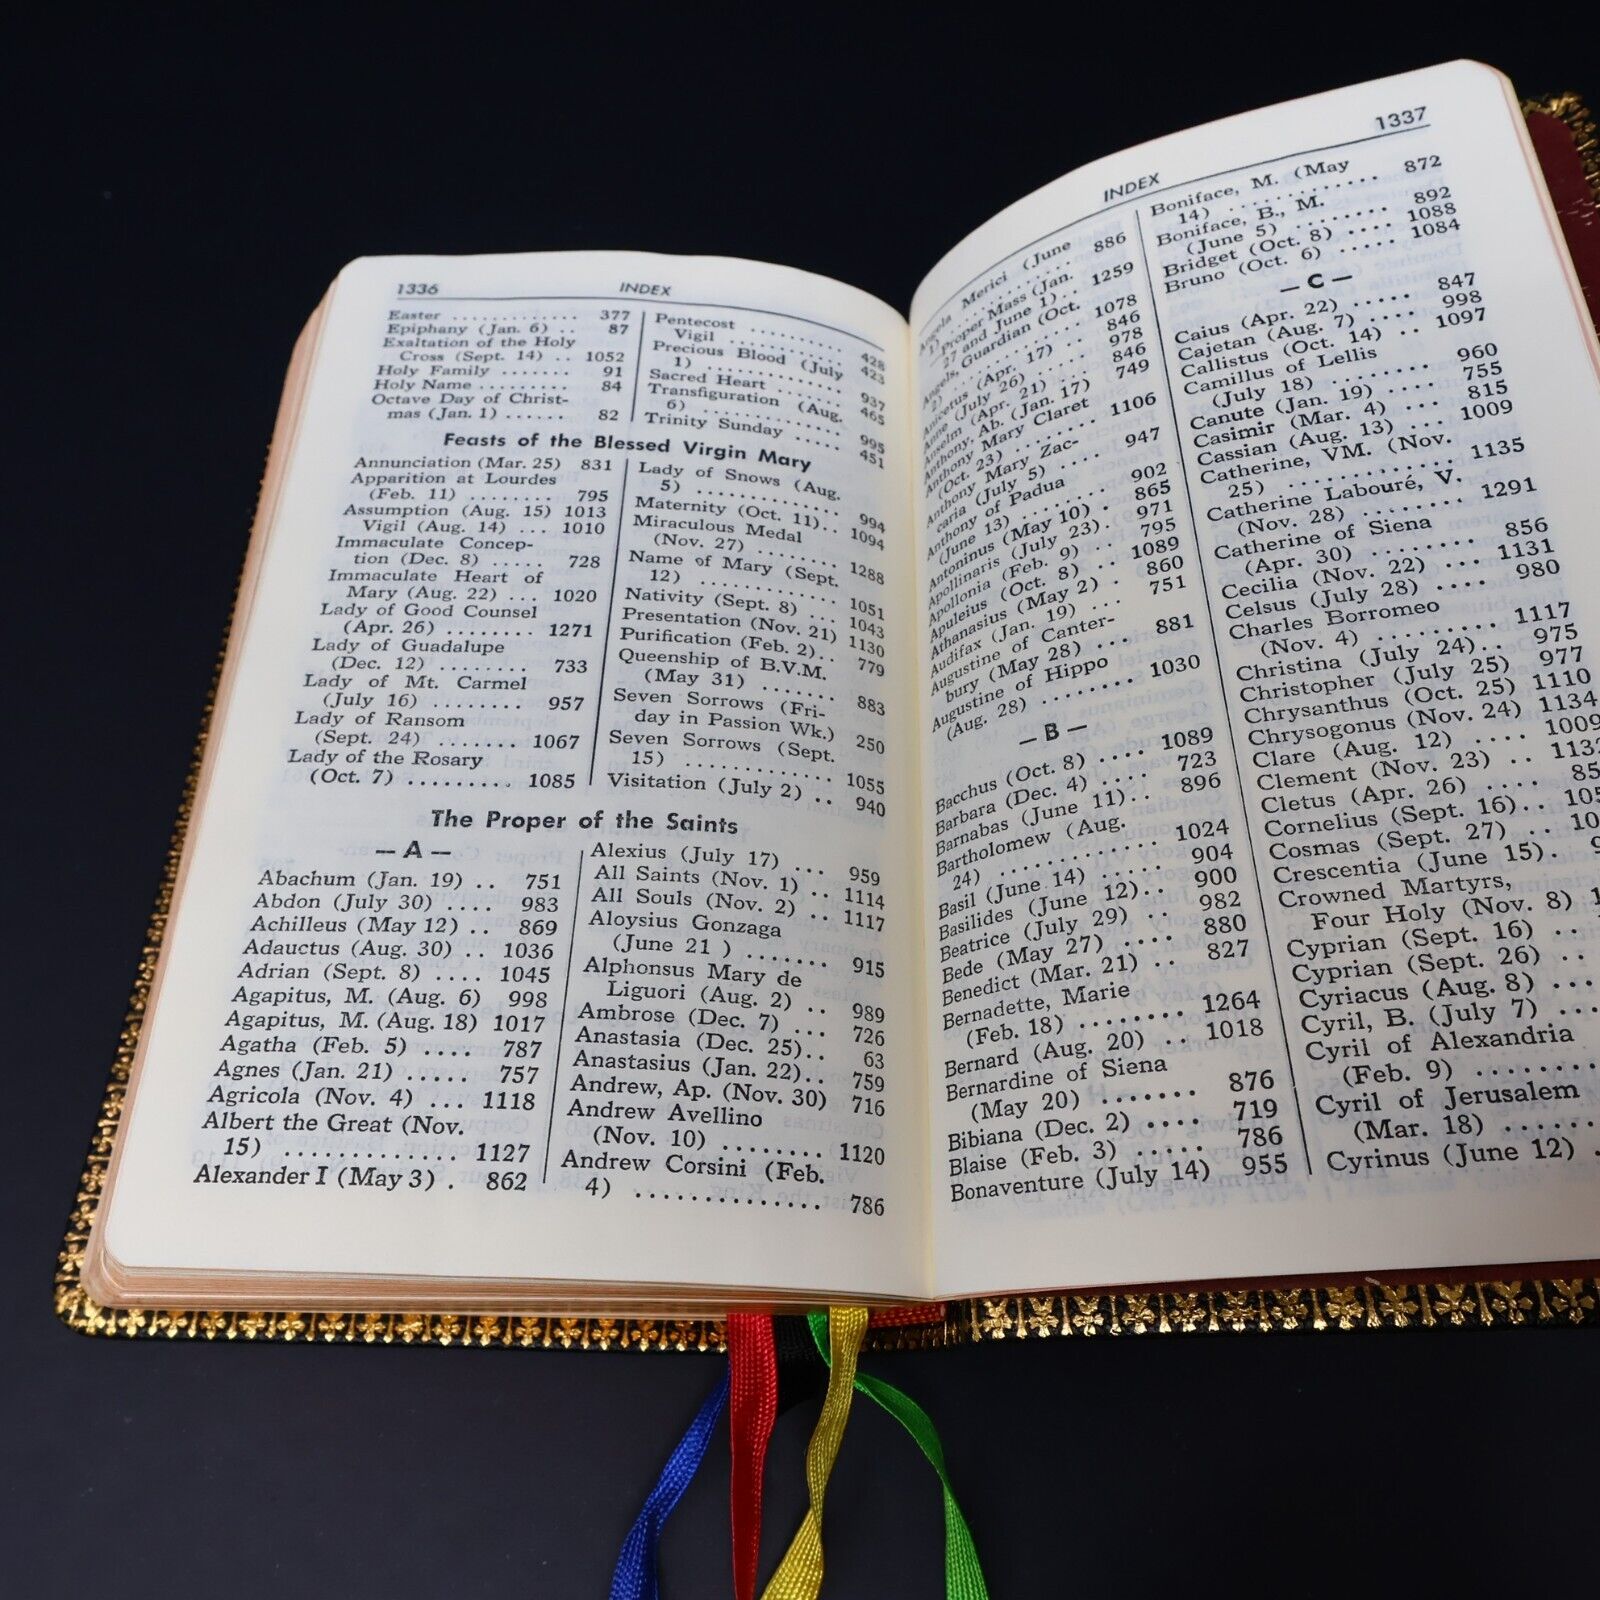 1336 INDEX
Easter ............. 377
Epiphany (Jan. 6) .. 87
Exaltation of the Holy
Cross (Sept. 14) .. 1052
Holy Family ....... 91
Holy Name ......... 84
Octave Day of Christ-
mas (Jan. 1) ...... 82
Pentecost .......... 428
Vigil ............. 423
Precious Blood (July
1) ............... 937
Sacred Heart ....... 465
Transfiguration (Aug.
6) ............... 995
Trinity Sunday ..... 451
Feasts of the Blessed Virgin Mary
Annunciation (Mar. 25) 831
Apparition at Lourdes
(Feb. 11) ........ 795
Assumption (Aug. 15) 1013
Vigil (Aug. 14) ... 1010
Immaculate Concep-
tion (Dec. 8) ..... 728
Immaculate Heart of
Mary (Aug. 22) ... 1020
Lady of Good Counsel
(Apr. 26) ........ 1271
Lady of Guadalupe
(Dec. 12) ........ 733
Lady of Mt. Carmel
(July 16) ........ 957
Lady of Ransom
(Sept. 24) ....... 1067
Lady of the Rosary
(Oct. 7) .......... 1085
Lady of Snows (Aug.
5) ............... 994
Maternity (Oct. 11).. 1094
Miraculous Medal
(Nov. 27) ........ 1288
Name of Mary (Sept.
12) .............. 1051
Nativity (Sept. 8) ... 1043
Presentation (Nov. 21) 1130
Purification (Feb. 2).. 779
Queenship of B.V.M.
(May 31) ....... 883
Seven Sorrows (Fri-
day in Passion Wk.) 250
Seven Sorrows (Sept.
15) ............ 1055
Visitation (July 2) .. 940
The Proper of the Saints
—A—
Abachum (Jan. 19) .. 751
Abdon (July 30) .... 983
Achilleus (May 12) .. 869
Adauctus (Aug. 30) .. 1036
Adrian (Sept. 8) .... 1045
Agapitus, M. (Aug. 6) 998
Agapitus, M. (Aug. 18) 1017
Agatha (Feb. 5) .... 787
Agnes (Jan. 21) ..... 757
Agricola (Nov. 4) ... 1118
Albert the Great (Nov.
15) ............. 1127
Alexander I (May 3) . 862
Alexius (July 17) ... 959
All Saints (Nov. 1) .. 1114
All Souls (Nov. 2) .. 1117
Aloysius Gonzaga
(June 21 ) ....... 915
Alphonsus Mary de
Liguori (Aug. 2) .. 989
Ambrose (Dec. 7) ... 726
Anastasia (Dec. 25).. 63
Anastasius (Jan. 22).. 759
Andrew, Ap. (Nov. 30) 716
Andrew Avellino
(Nov. 10) ........ 1120
Andrew Corsini (Feb.
4) .............. 786
INDEX 1337
Angela Merici (June
1) .......... 886
—Proper Mass (Jan.
27 and June 1) .. 1259
Angels, Guardian (Oct.
2) ............ 1078
Anicetus (Apr. 17) .. 846
Anne (July 26) ..... 978
Anselm (Apr. 21) .... 846
Anthony, Ab. (Jan. 17) 749
Anthony Mary Claret
(Oct. 23) ........ 1106
Anthony Mary Zac-
caria (July 5) .... 947
Anthony of Padua
(June 13) ........ 902
Antoninus (May 10) . 865
Apollinaris (July 23). 971
Apollonia (Feb. 9) .. 795
Apuleius (Oct. 8) .. 1089
Athanasius (May 2) . 860
Audifax (Jan. 19) ... 751
Augustine of Canter-
bury (May 28) ... 881
Augustine of Hippo
(Aug. 28) ........ 1030
—B—
Bacchus (Oct. 8) .... 1089
Barbara (Dec. 4) .... 723
Barnabas (June 11).. 896
Bartholomew (Aug.
24) ............ 1024
Basil (June 14) ..... 904
Basilides (June 12).. 900
Beatrice (July 29) .. 982
Bede (May 27) .... 880
Benedict (Mar. 21) .. 827
Bernadette, Marie
(Feb. 18) ........ 1264
Bernard (Aug. 20) .. 1018
Bernardine of Siena
(May 20) ....... 876
Bibiana (Dec. 2) .... 719
Blaise (Feb. 3) ..... 786
Bonaventure (July 14) 955
Boniface, M. (May
14) ............ 872
Boniface, B., M.
(June 5) ....... 892
Bridget (Oct. 8) .... 1088
Bruno (Oct. 6) ..... 1084
—C—
Caius (Apr. 22) ..... 847
Cajetan (Aug. 7) .... 998
Callistus (Oct. 14) .. 1097
Camillus of Lellis
(July 18) ........ 960
Canute (Jan. 19) .... 755
Casimir (Mar. 4) ... 815
Cassian (Aug. 13) ... 1009
Catherine, VM. (Nov.
25) ........... 1135
Catherine Labouré, V.
(Nov. 28) ........ 1291
Catherine of Siena
(Apr. 30) ........ 856
Cecilia (Nov. 22) ... 1131
Celsus (July 28) .... 980
Charles Borromeo
(Nov. 4) ......... 1117
Christina (July 24).. 975
Christopher (July 25) 977
Chrysanthus (Oct. 25) 1110
Chrysogonus (Nov. 24) 1134
Clare (Aug. 12) .... 1009
Clement (Nov. 23) ..
Cletus (Apr. 26) ....
Cornelius (Sept. 16)..
Cosmas (Sept. 27) ..
Crescentia (June 15).
Crowned Martyrs,
Four Holy (Nov. 8)
Cyprian (Sept. 16) ..
Cyprian (Sept. 26) ..
Cyriacus (Aug. 8) ...
Cyril, B. (July 7) ....
Cyril of Alexandria
(Feb. 9) ........
Cyril of Jerusalem
(Mar. 18) .......
Cyrinus (June 12) .